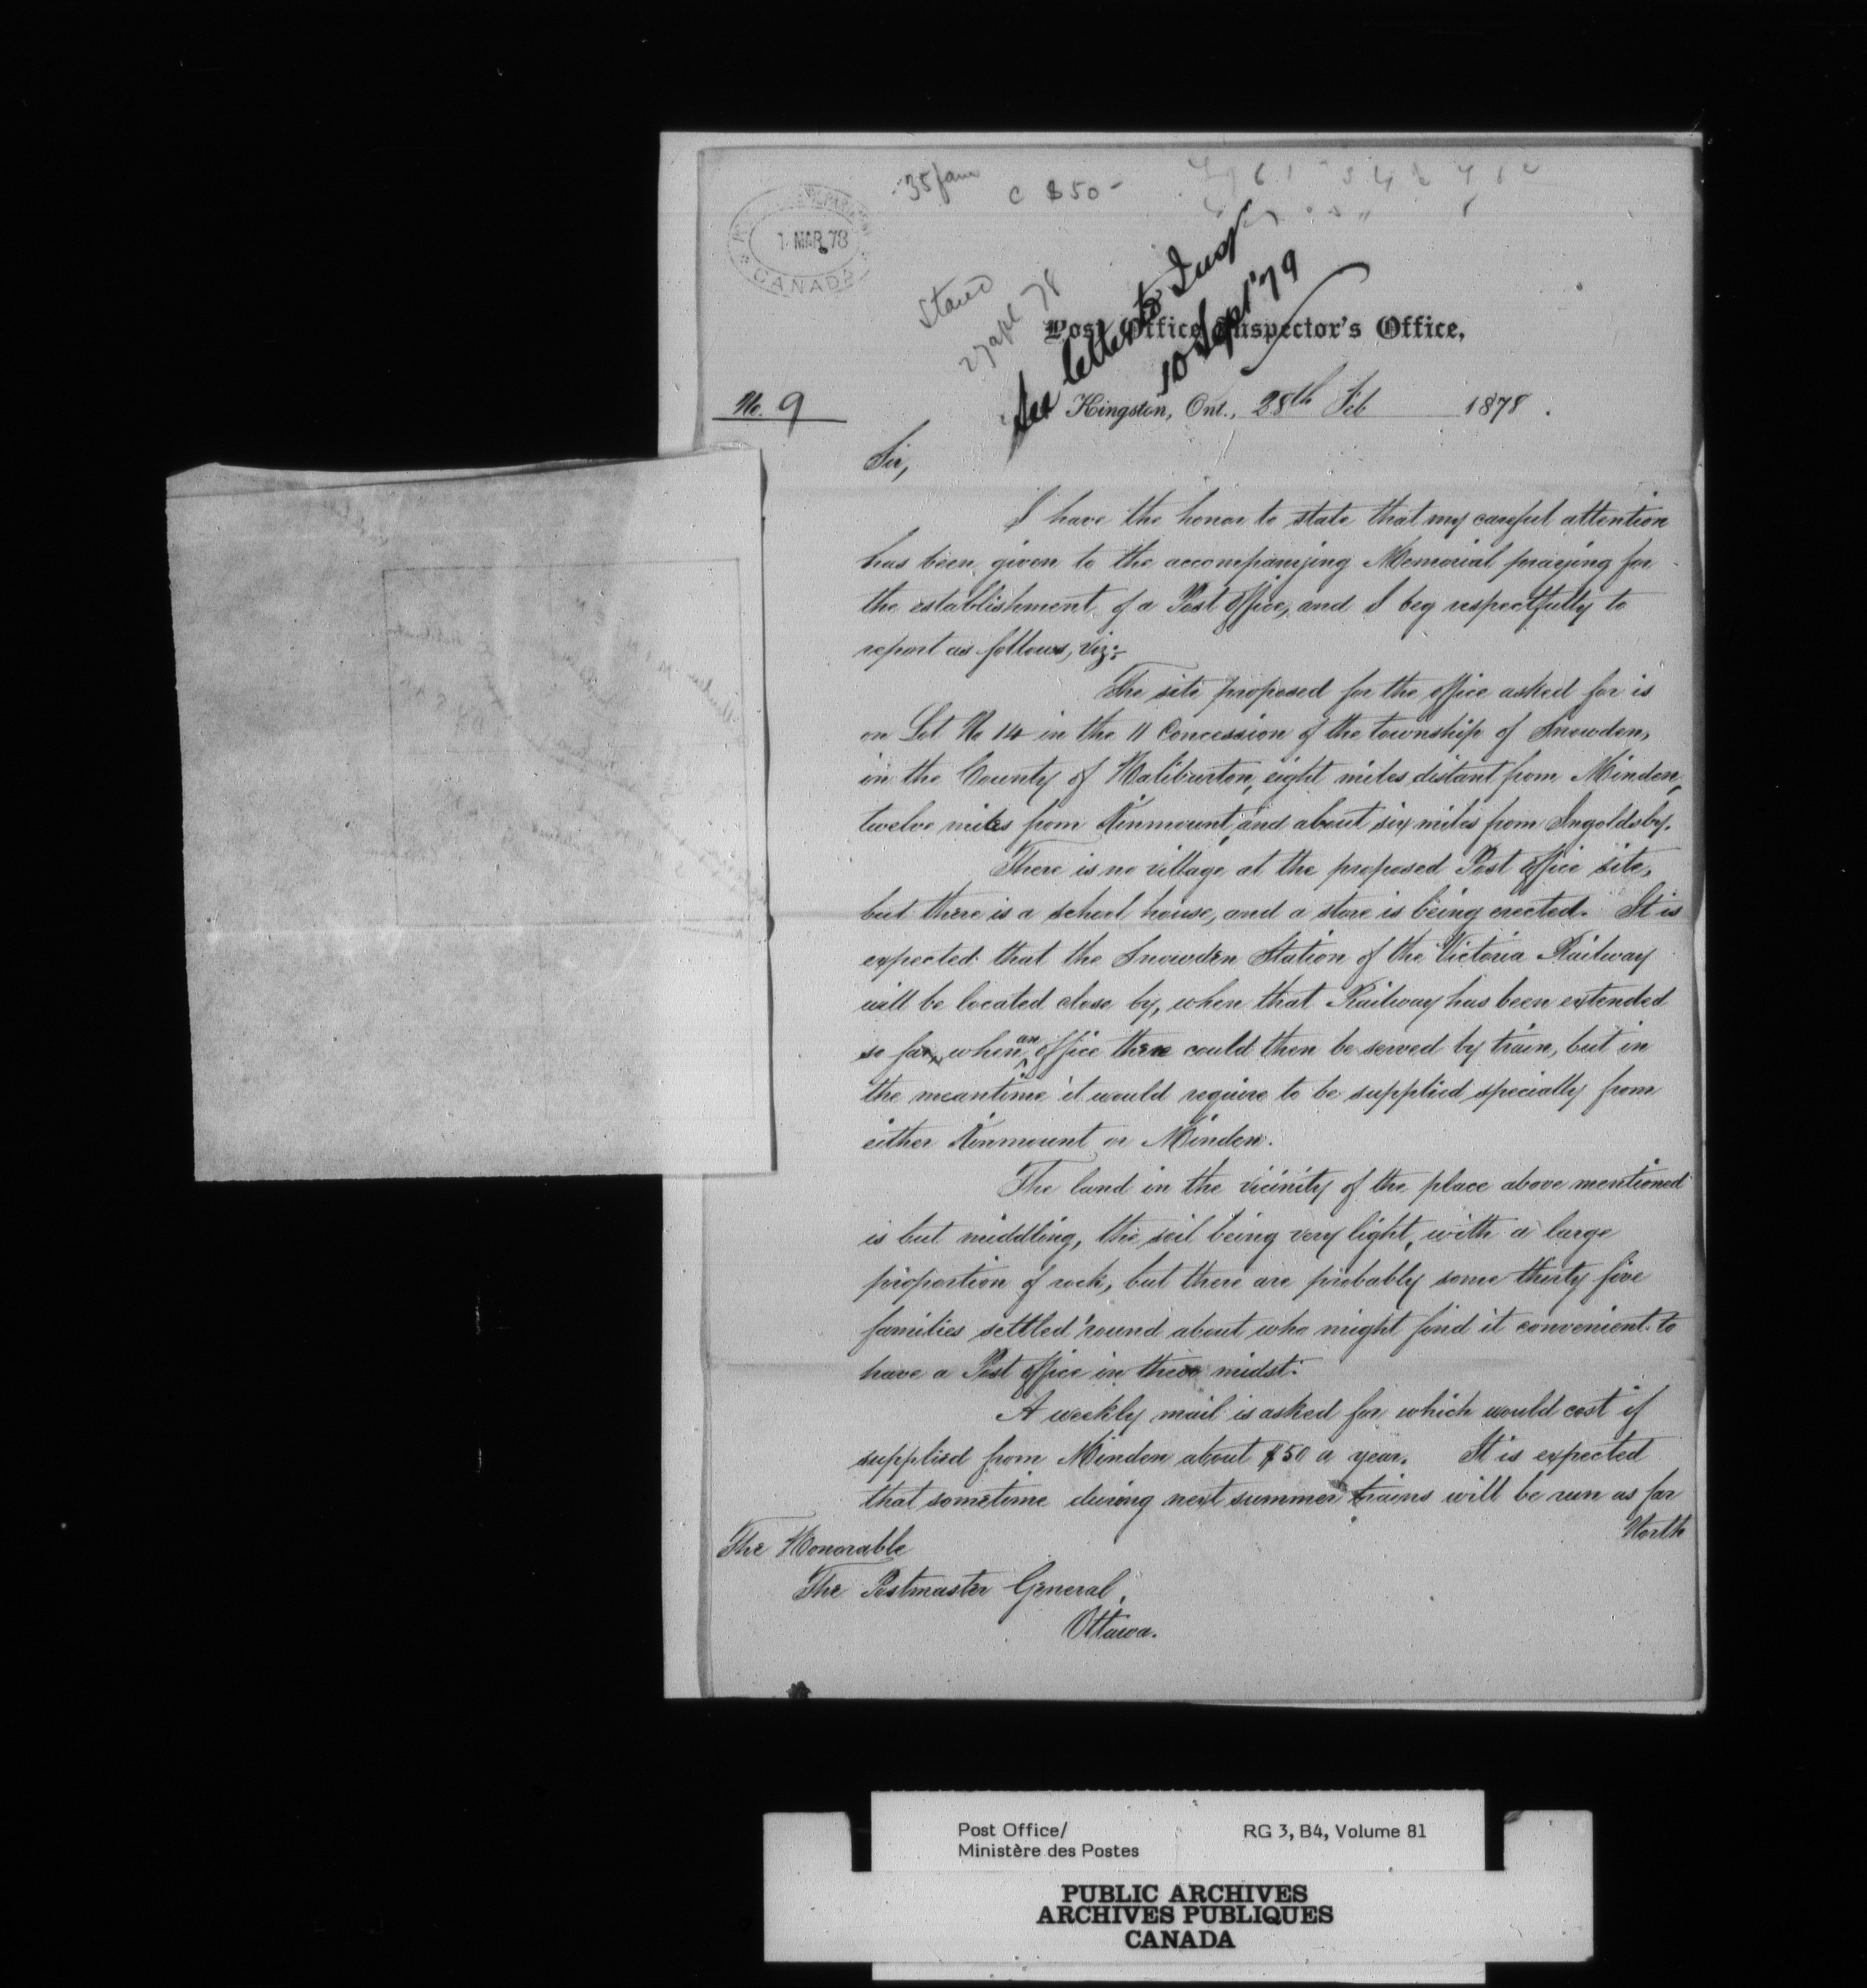 35 fam
C $50-
1 MAR 78
CANADA
Stand
27 apl 78
See letter to Insp
10 Sept '79
Post Office Inspector's Office,
No. 9
Kingston, Ont., 28th Feb 1878.
Sir,
I have the honor to state that my careful attention
has been given to the accompanying Memorial praying for
the establishment of a Post Office, and I beg respectfully to
report as follows, viz:-
The site proposed for the office asked for is
on Lot No 14 in the 11 Concession of the township of Snowden,
in the County of Haliburton, eight miles distant from Minden,
twelve miles from Kinmount, and about six miles from Ingoldsby.
There is no village at the proposed Post Office site,
but there is a school house, and a store is being erected. It is
expected that the Snowden Station of the Victoria Railway
will be located close by, when that Railway has been extended
so far, when an office there could then be served by train, but in
the meantime it would require to be supplied specially from
either Kinmount or Minden.
The land in the vicinity of the place above mentioned
is but middling, the soil being very light, with a large
proportion of rock, but there are probably some thirty five
families settled 'round about who might find it convenient to
have a Post Office in their midst.
A weekly mail is asked for which would cost if
supplied from Minden about $50 a year. It is expected
that sometime during next summer trains will be run as far
North
The Honorable
The Postmaster General,
Ottawa.
Post Office/
Ministère des Postes
RG 3, B4, Volume 81
PUBLIC ARCHIVES
ARCHIVES PUBLIQUES
CANADA